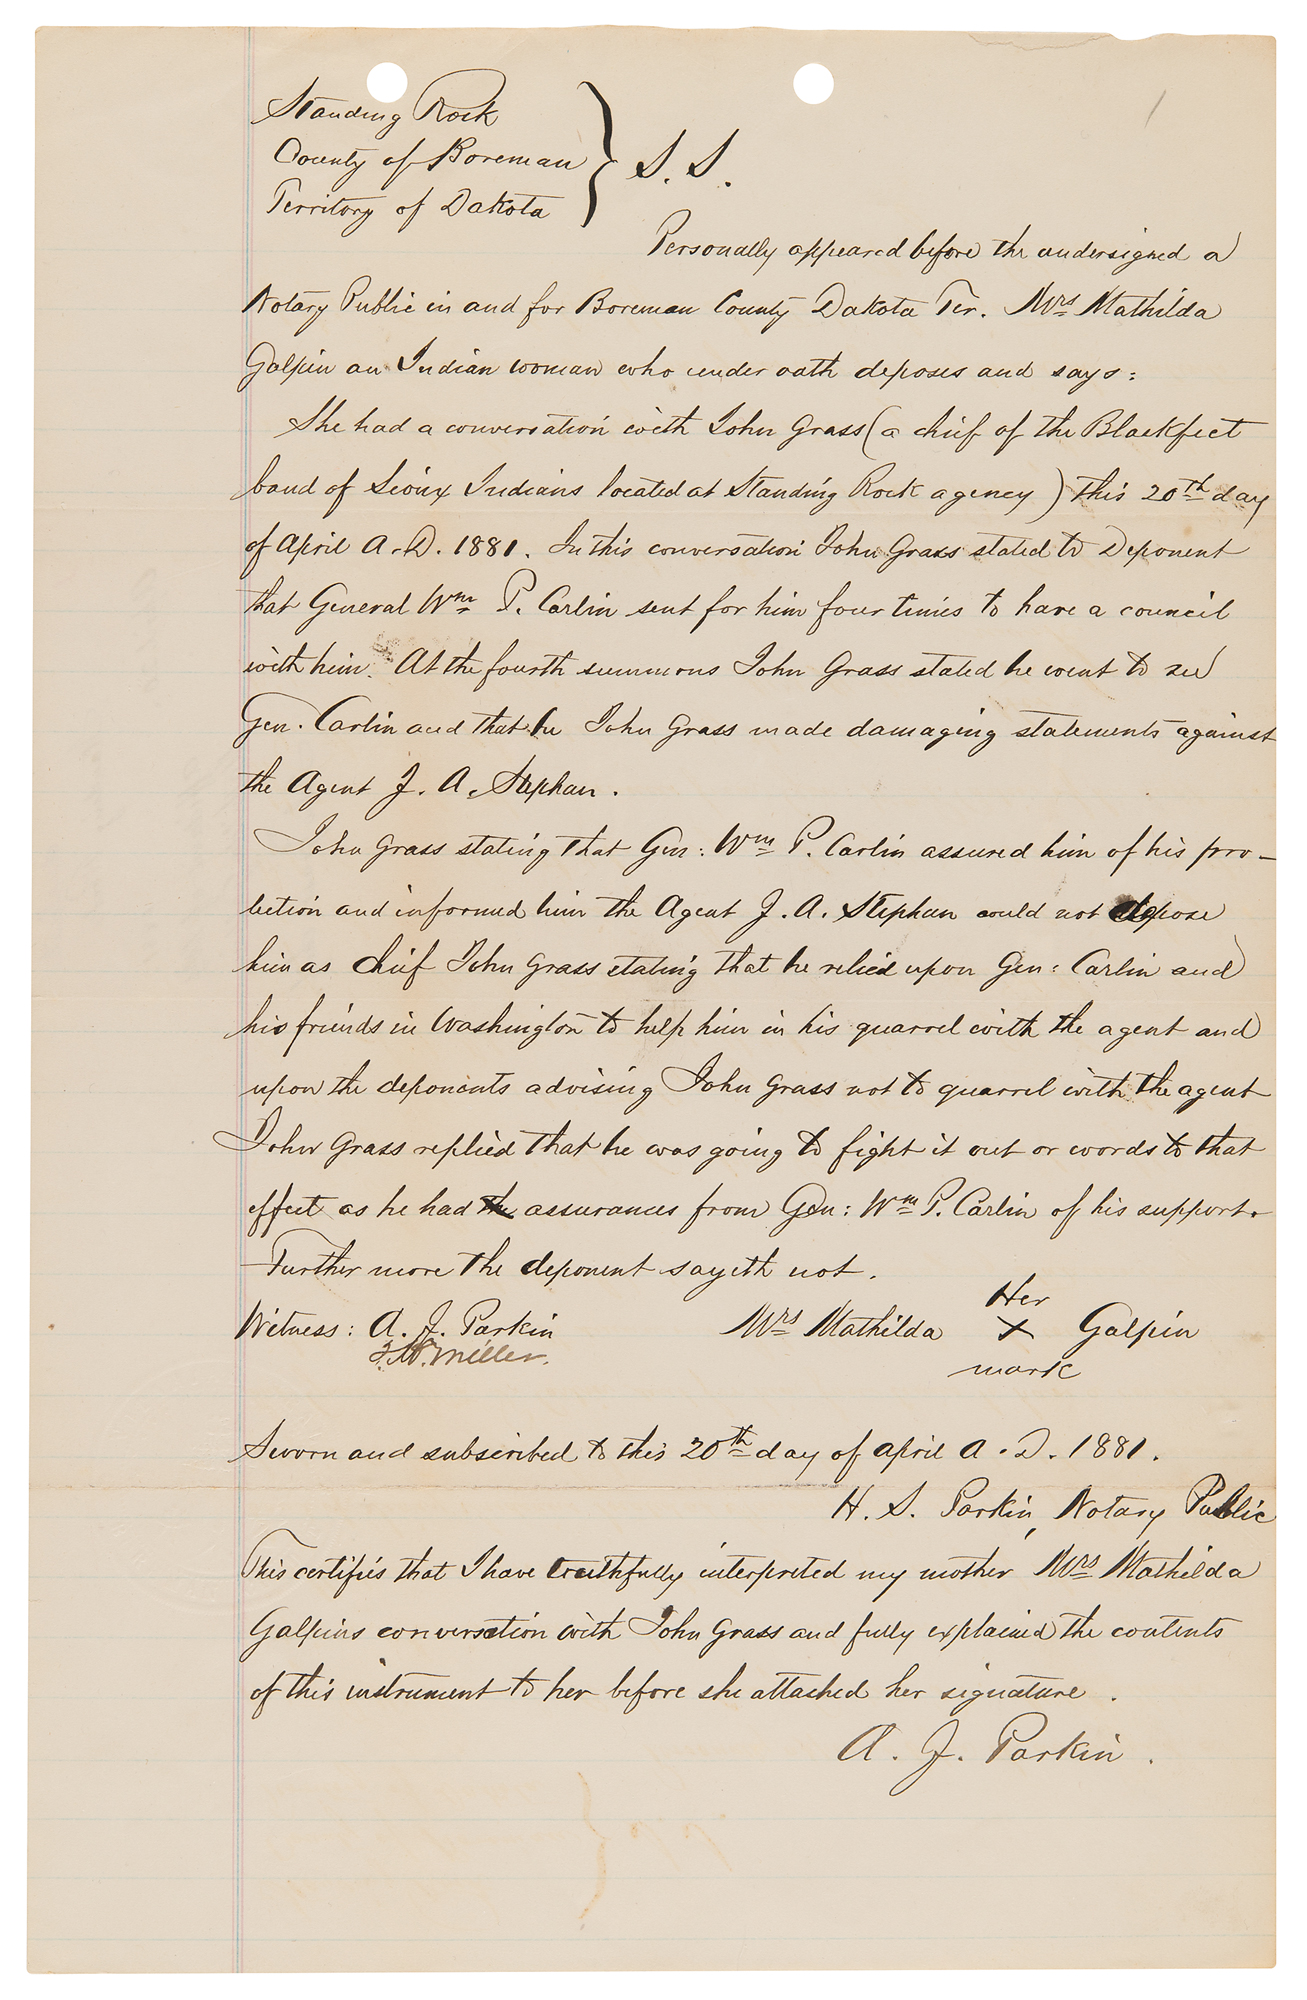 1
Standing Rock
County of Boreman } S. S.
Territory of Dakota
Personally appeared before the undersigned a
Notary Public in and for Boreman County Dakota Ter. Mrs Mathilda
Galpin an Indian woman who under oath deposes and says:
She had a conversation with John Grass (a chief of the Blackfeet
band of Sioux Indians located at Standing Rock agency) this 20th day
of April A.D. 1881. In this conversation John Grass stated to Deponent
that General Wm P. Carlin sent for him four times to have a council
with him. At the fourth summons John Grass stated he went to see
Gen. Carlin and that he John Grass made damaging statements against
the Agent J. A. Stephan.
John Grass stating that Gen: Wm P. Carlin assured him of his pro-
tection and informed him the Agent J. A. Stephan could not depose
him as chief John Grass stating that he relied upon Gen: Carlin and
his friends in Washington to help him in his quarrel with the agent and
upon the deponents advising John Grass not to quarrel with the agent
John Grass replied that he was going to fight it out or words to that
effect as he had the assurances from Gen: Wm P. Carlin of his support.
Further more the deponent sayeth not.
Her
Witness: A. J. Parkin Mrs Mathilda X Galpin
J. W. Miller. mark
Sworn and subscribed to this 20th day of April A. D. 1881.
H. S. Parkin, Notary Public
This certifies that I have truthfully interpreted my mother Mrs Mathilda
Galpins conversation with John Grass and fully explained the contents
of this instrument to her before she attached her signature.
A. J. Parkin.